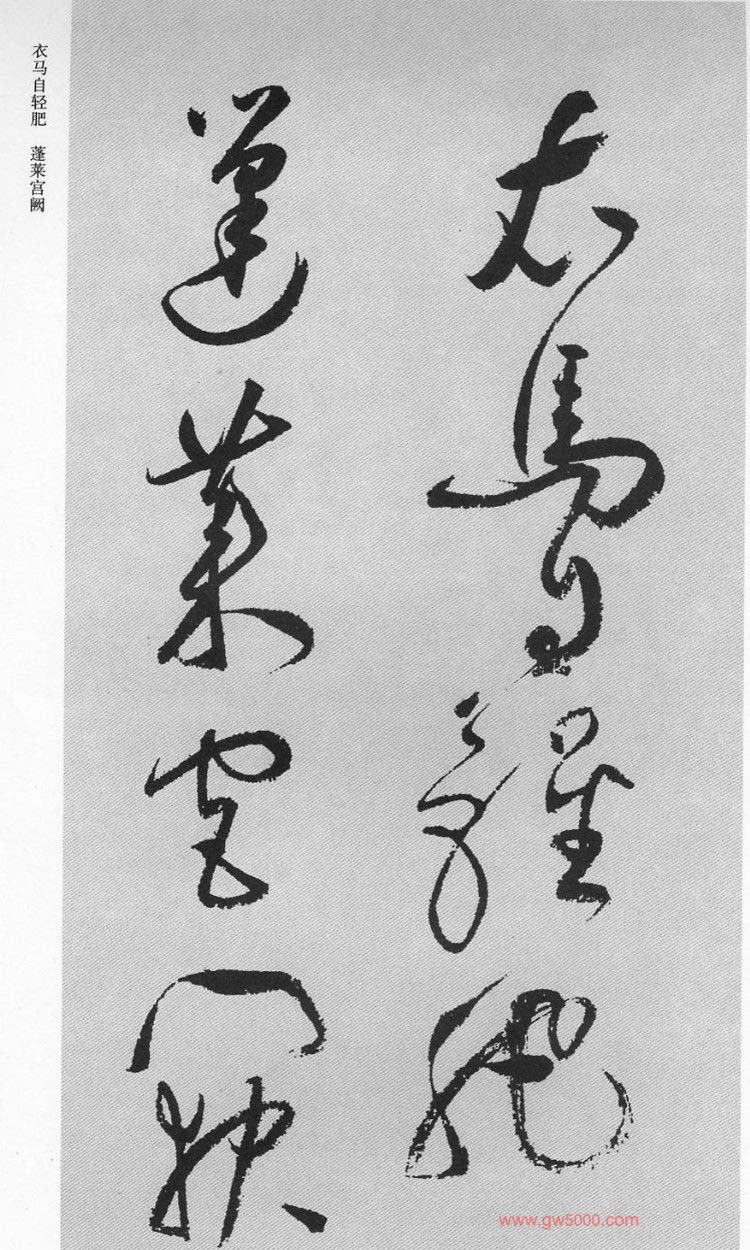 衣馬自輕肥
蓬萊宮闕
衣马自轻肥　蓬莱宫阙
www.gw5000.com